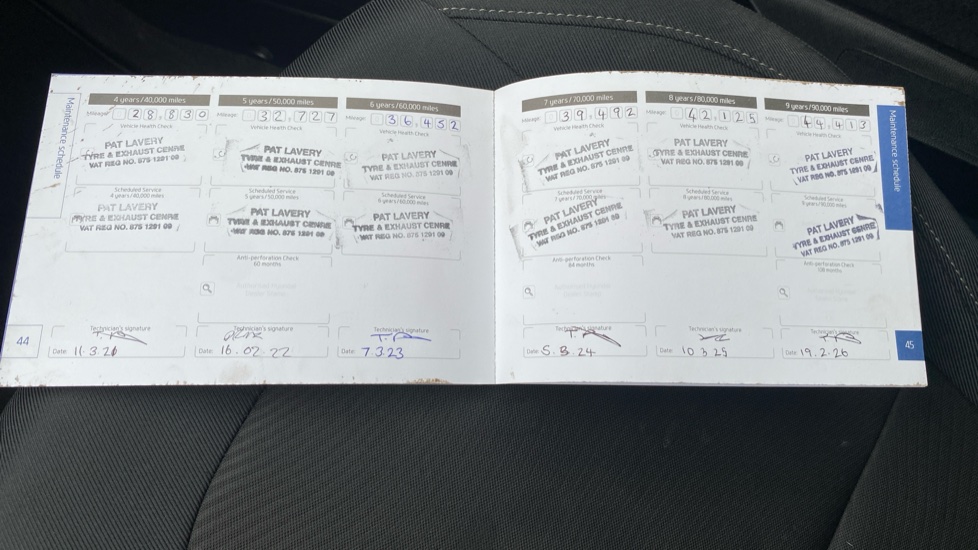 Maintenance schedule
4 years/40,000 miles
Mileage 28,830
Vehicle Health Check
PAT LAVERY
TYRE & EXHAUST CENRE
VAT REG NO. 875 1291 09
Scheduled Service
4 years/40,000 miles
PAT LAVERY
TYRE & EXHAUST CENRE
VAT REG NO. 875 1291 09
Technician's signature
Date: 11.3.21
44
5 years/50,000 miles
Mileage 32,727
Vehicle Health Check
PAT LAVERY
TYRE & EXHAUST CENRE
VAT REG NO. 875 1291 09
Scheduled Service
5 years/50,000 miles
PAT LAVERY
TYRE & EXHAUST CENRE
VAT REG NO. 875 1291 09
Anti-perforation Check
60 months
Technician's signature
Date: 16.02.22
6 years/60,000 miles
Mileage 36,452
Vehicle Health Check
PAT LAVERY
TYRE & EXHAUST CENRE
VAT REG NO. 875 1291 09
Scheduled Service
6 years/60,000 miles
PAT LAVERY
TYRE & EXHAUST CENRE
VAT REG NO. 875 1291 09
Technician's signature
Date: 7.3.23
7 years/70,000 miles
Mileage 39,492
Vehicle Health Check
PAT LAVERY
TYRE & EXHAUST CENRE
VAT REG NO. 875 1291 09
Scheduled Service
7 years/70,000 miles
PAT LAVERY
TYRE & EXHAUST CENRE
VAT REG NO. 875 1291 09
Anti-perforation Check
84 months
Technician's signature
Date: 5.3.24
8 years/80,000 miles
Mileage 42,125
Vehicle Health Check
PAT LAVERY
TYRE & EXHAUST CENRE
VAT REG NO. 875 1291 09
Scheduled Service
8 years/80,000 miles
PAT LAVERY
TYRE & EXHAUST CENRE
VAT REG NO. 875 1291 09
Technician's signature
Date: 10.3.25
9 years/90,000 miles
Mileage 44,413
Vehicle Health Check
PAT LAVERY
TYRE & EXHAUST CENRE
VAT REG NO. 875 1291 09
Scheduled Service
9 years/90,000 miles
PAT LAVERY
TYRE & EXHAUST CENRE
VAT REG NO. 875 1291 09
Anti-perforation Check
108 months
Technician's signature
Date: 19.2.26
Maintenance schedule
45